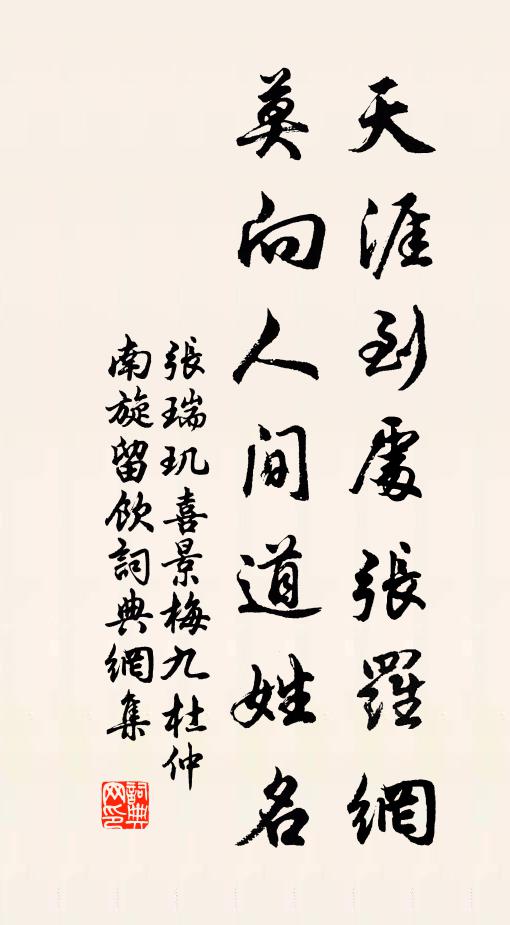 天涯到處張羅網
莫向人間道姓名
張瑞玑喜景梅九杜仲
南旋留飲詞典網集
詞典网印